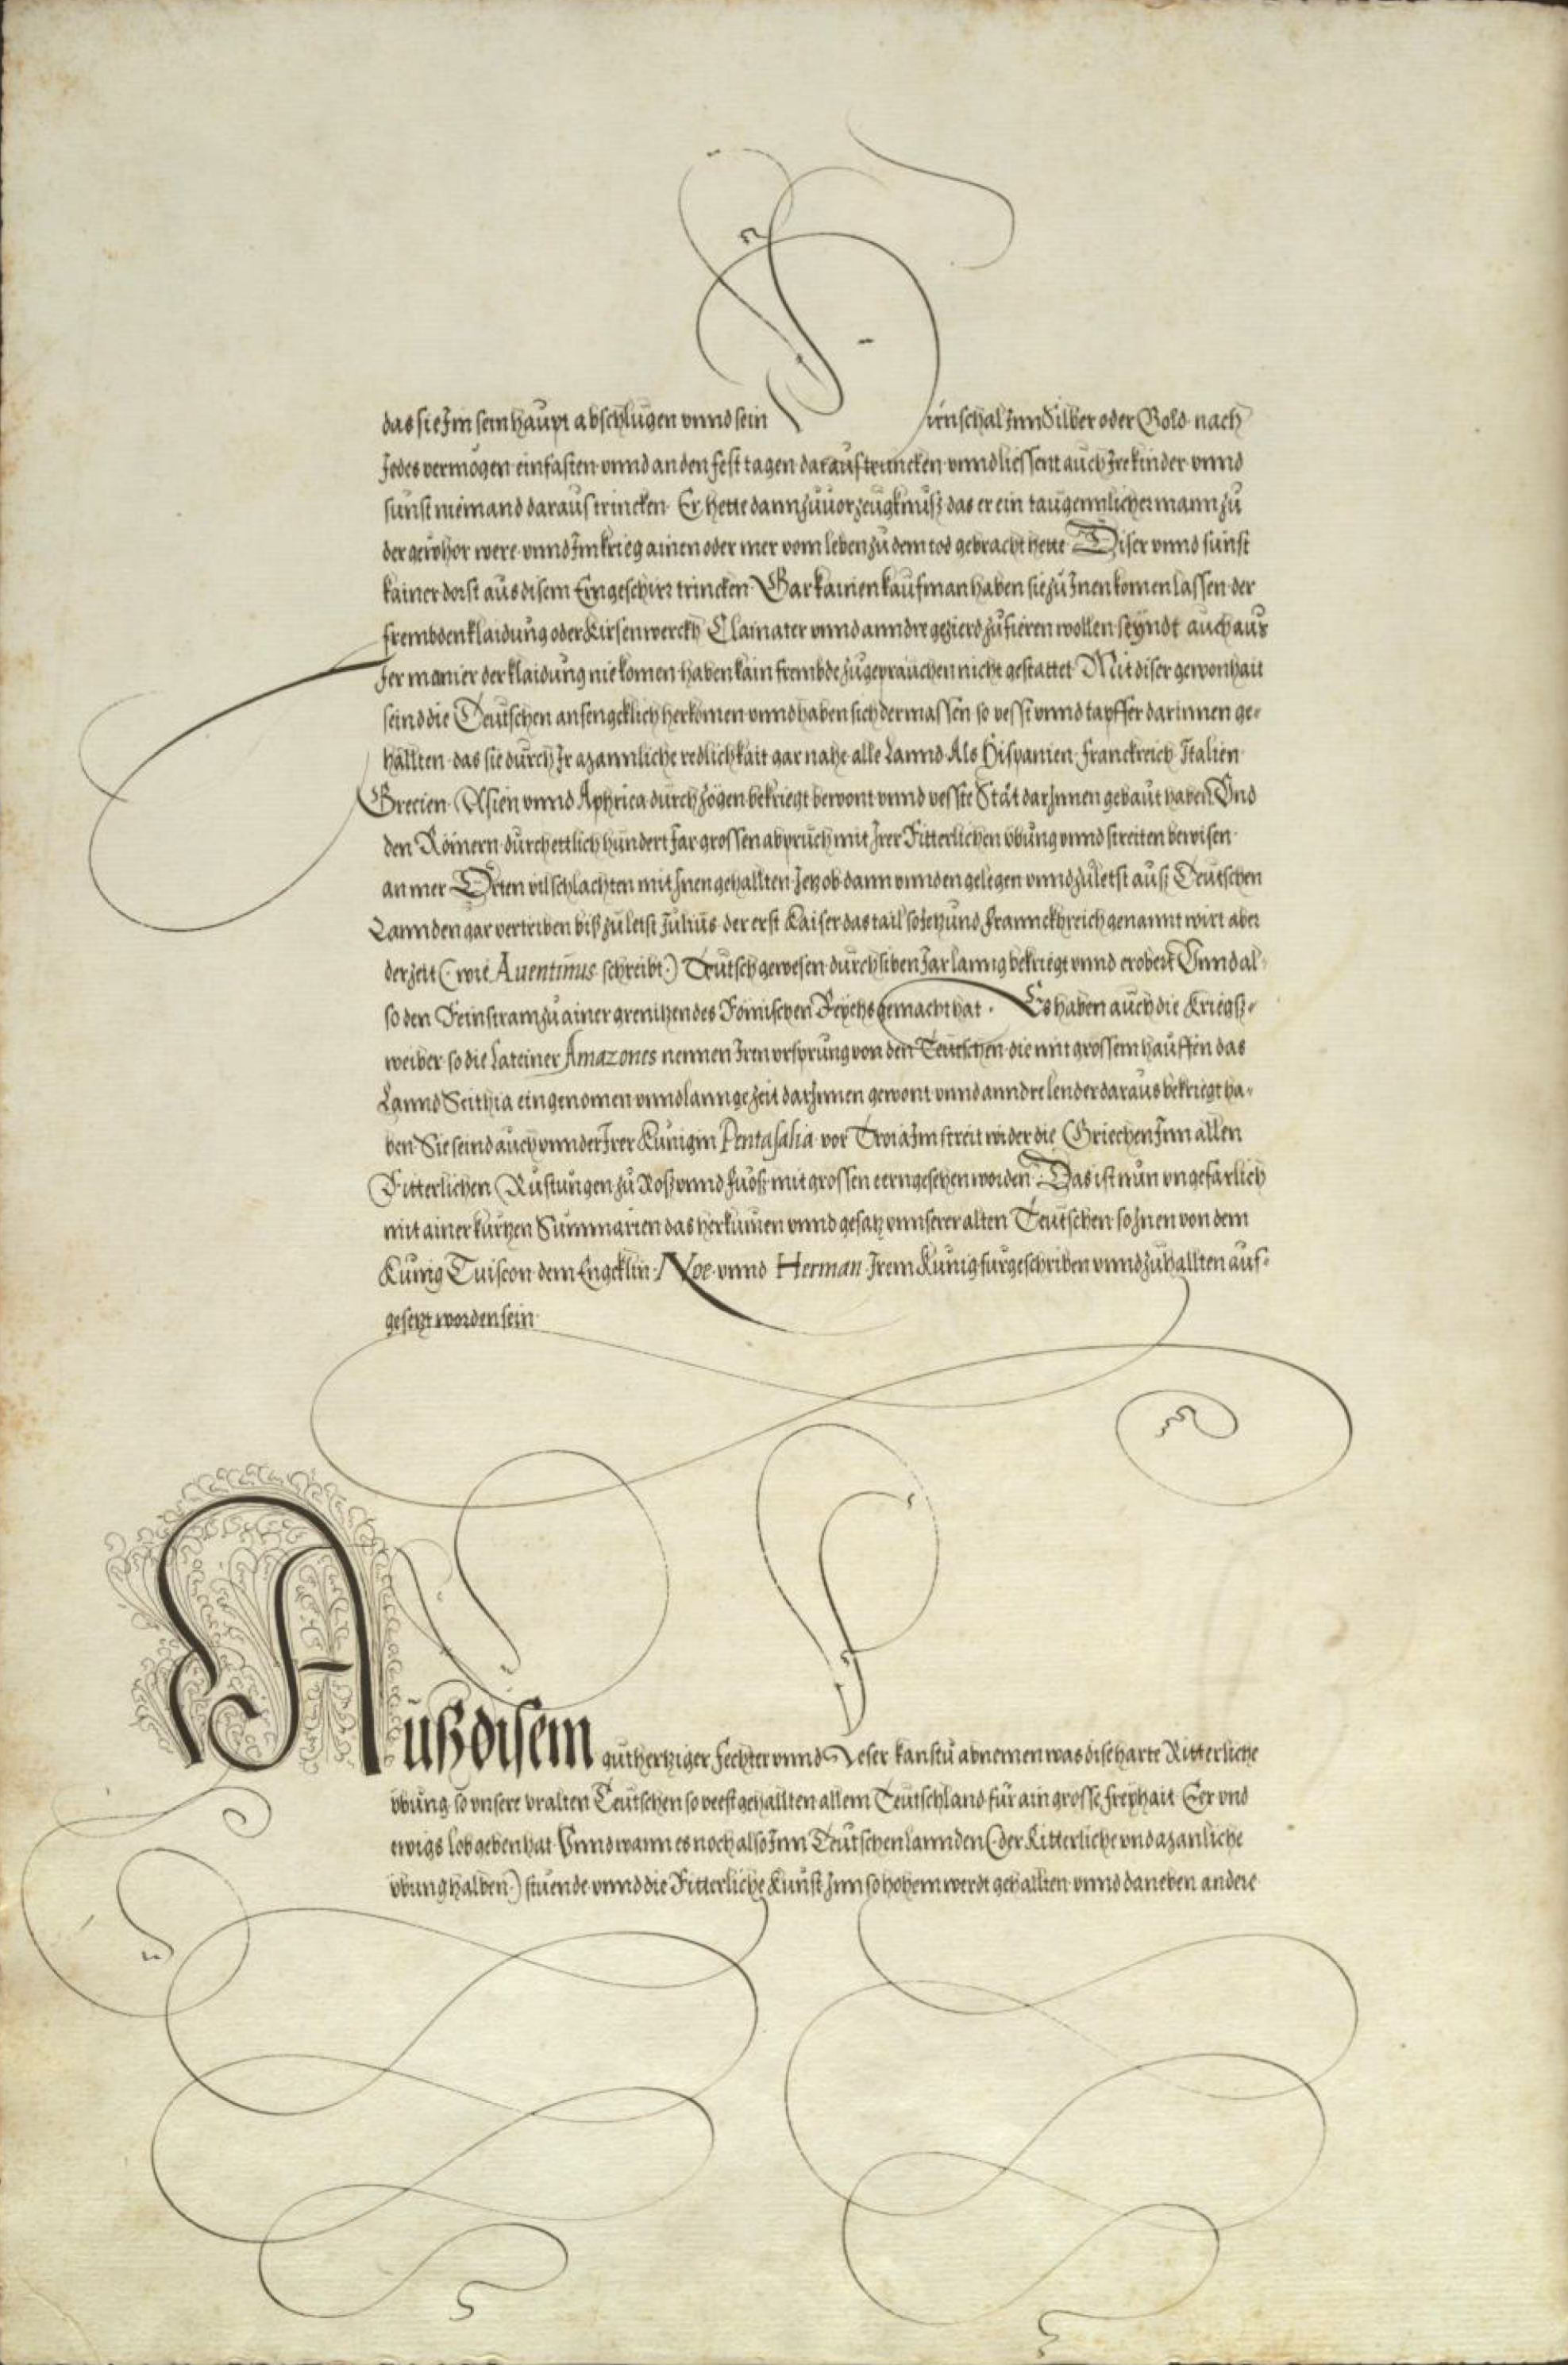 das sie Im sein haupt abschlugen vnnd sein Hirnschal Inn Silber oder Gold nach
Jedes vermögen einfasten vnnd an den fest tagen daraus truncken vnnd liessent auch Ire kinder vnnd
sunst niemand daraus trincken Er hette dann zuuor zeugknusz das er ein taugennlicher mann zu
der gewhor were vnnd Im krieg ainen oder mer vom leben zu dem tod gebracht hette Diser vnnd sunst
kainer dorst aus disem Eingeschirr trincken Gar kainen kaufman haben sie zu Inen komen lassen der
frembden klaidung oder Kirsenwerckh Clainater vnnd anndre gezierd zufieren wollen seyndt auch aus
Irer manier der klaidung nie komen haben kain frembde zugeprauchen nicht gestattet Mit diser gewonhait
seind die Deutschen anfengcklich herkomen vnnd haben sich dermassen so vesst vnnd tapffer darinnen ge-
hallten das sie durch Ir mannliche redlichkait gar nahe alle Lannd Als Hispanien Franckreich Italien
Grecien Asien vnnd Aphrica durchzogen bekriegt bewont vnnd vesste Stät darInnen gebaut haben Vnd
den Römern durch ettlich hundert Jar grossen abpruch mit Irer Ritterlichen vbung vnnd streiten bewisen
an mer Orten vil schlachten mit Inen gehallten Jetz ob dann vnnden gelegen vnnd zuletst ausz Deutschen
Lannden gar vertriben bisz zuletst Julius der erst Kaiser das tail so Jetzund Frannckhreich genannt wirt aber
der zeit (wie Auentinus schreibt) Teutsch gewesen durch siben Jar lanng bekriegt vnnd erobert Vnnd al-
so den Reinstram zu ainer grenitzen des Römischen Reychs gemacht hat. Es haben auch die Kriegsz-
weiber so die Lateiner Amazones nennen Iren vrsprung von den Teutschen die mit grossem hauffen das
Lannd Scithia eingenomen vnnd lannge zeit darInnen gewont vnnd anndre lender daraus bekriegt ha-
ben Sie seind auch vnnder Irer Kunigin Pentasalia vor Troia Im streit wider die Griechen Inn allen
Ritterlichen Rustungen zu Rosz vnnd Fuosz mit grossen eern gesehen worden Das ist nun vngefarlich
mit ainer kurtzen Summarien das herkumen vnnd gesatz vnnserer alten Teutschen so Inen von dem
Kunig Tuiscon dem Engcklin Noe vnnd Herman Irem Kunig furgeschriben vnnd zuhallten auf-
gesetzt worden sein
Auszdisem guthertziger Fechter vnnd Leser kanstu abnemen was dise harte Ritterliche
vbung so vnsere vralten Teutschen so veest gehallten allem Teutschland für ain grosse freyhait Eer vnd
ewigs lob geben hat Vnnd wann es noch also Inn Teutschen lannden (der Ritterliche vnd manliche
vbung halben) stuende vnnd die Ritterliche Kunst Inn so hohem werdt gehallten vnnd daneben andere